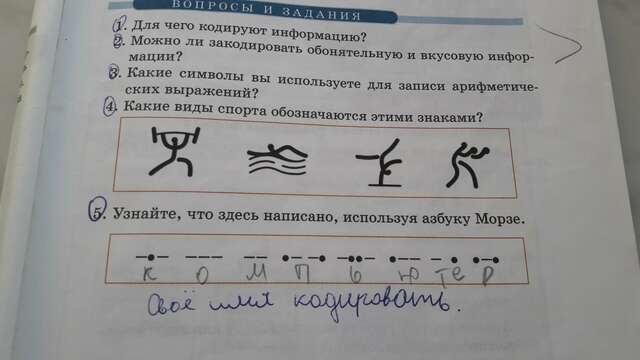 ВОПРОСЫ И ЗАДАНИЯ
1. Для чего кодируют информацию?
2. Можно ли закодировать обонятельную и вкусовую инфор-
мации?
3. Какие символы вы используете для записи арифметиче-
ских выражений?
4. Какие виды спорта обозначаются этими знаками?
5. Узнайте, что здесь написано, используя азбуку Морзе.
–•– ––– –– •––• –••– •––– – • •–•
К О М П Ь Ю Т Е Р
Своё имя кодировать.